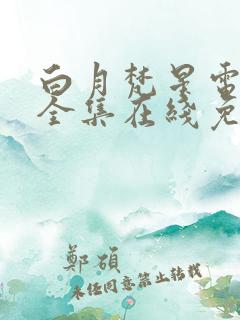 白月梵星電
全集在綫免
鄭碩
未经同意禁止转载